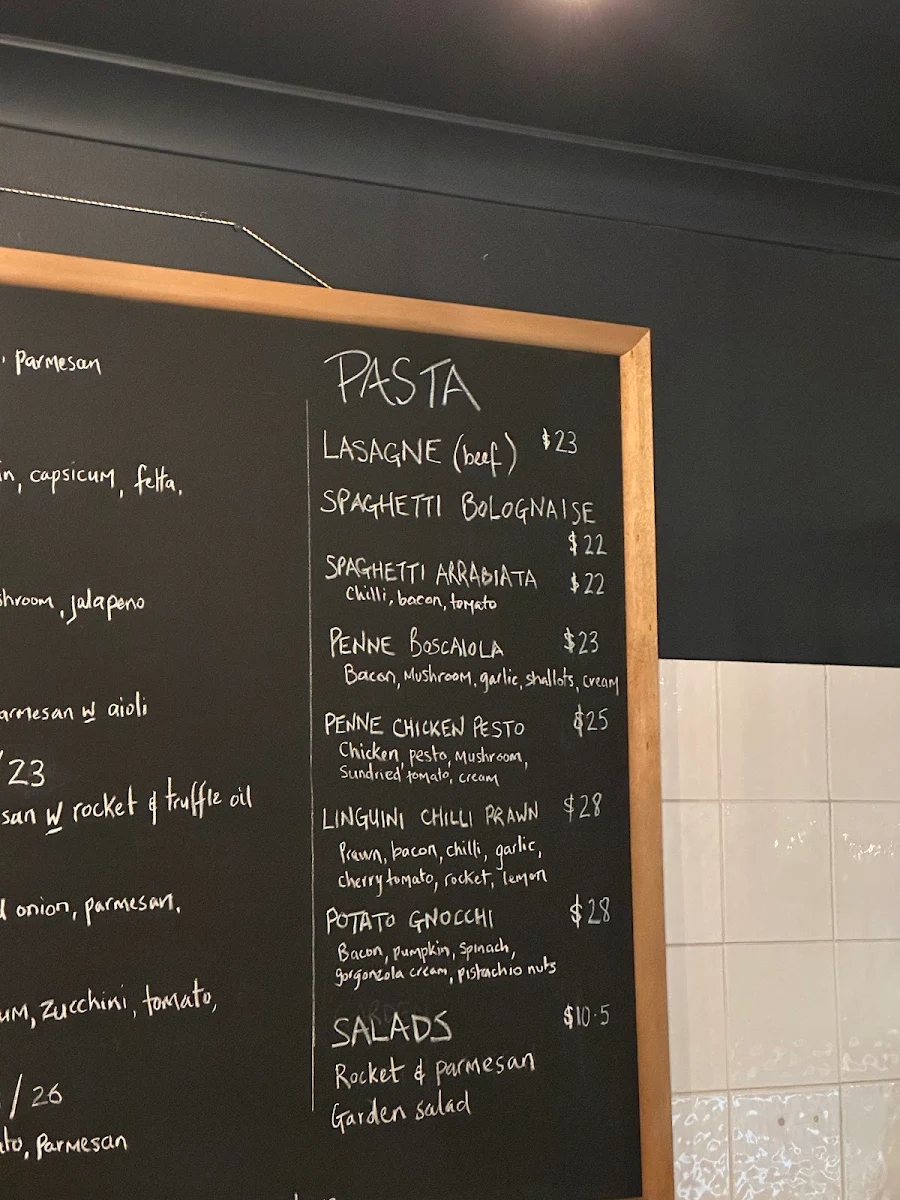 , parmesan
in, capsicum, fetta,
shroom, jalapeno
armesan w aioli
/23
san w rocket & truffle oil
d onion, parmesan,
um, zucchini, tomato,
/26
ato, parmesan
PASTA
LASAGNE (beef) $23
SPAGHETTI BOLOGNAISE
$22
SPAGHETTI ARRABIATA $22
Chilli, bacon, tomato
PENNE BOSCAIOLA $23
Bacon, Mushroom, garlic, shallots, cream
PENNE CHICKEN PESTO $25
Chicken, pesto, Mushroom,
Sundried tomato, cream
LINGUINI CHILLI PRAWN $28
Prawn, bacon, chilli, garlic,
cherry tomato, rocket, lemon
POTATO GNOCCHI $28
Bacon, pumpkin, spinach,
gorgonzola cream, pistachio nuts
SALADS $10.5
Rocket & parmesan
Garden salad